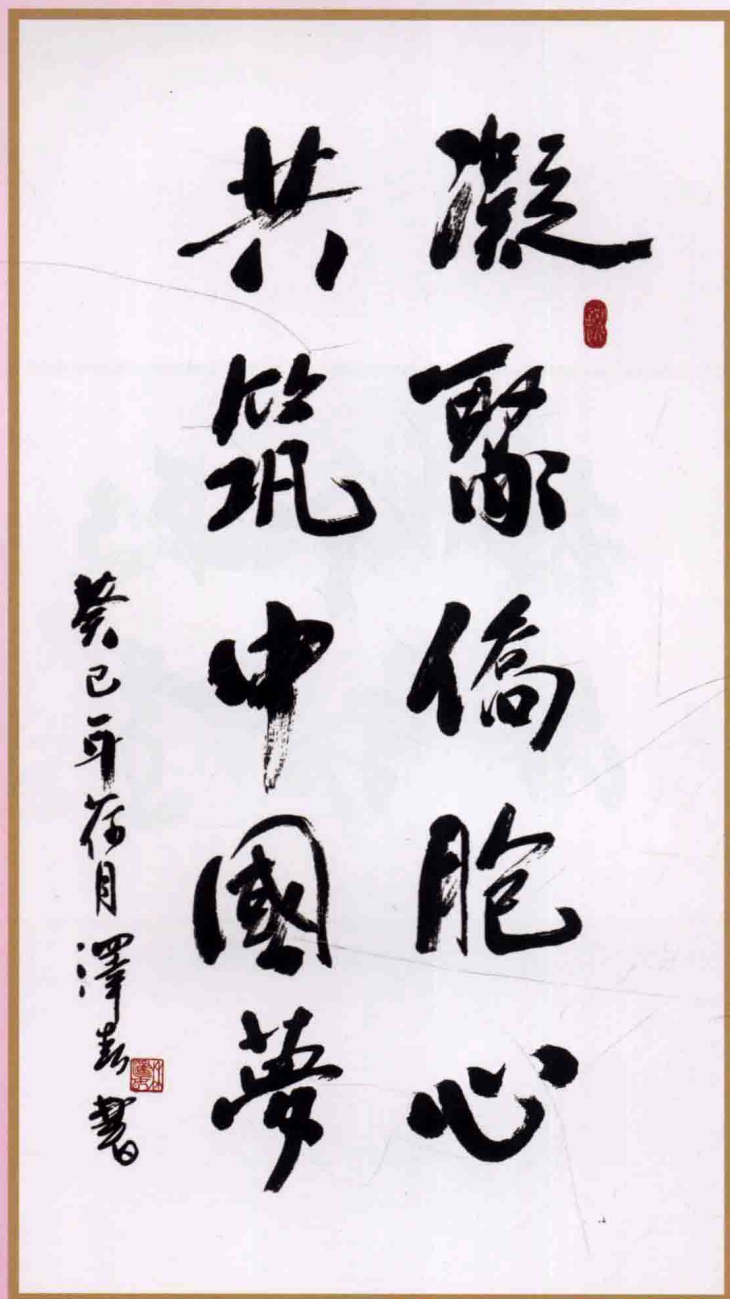 凝聚僑胞心
共筑中國夢
癸巳年荷月澤春書